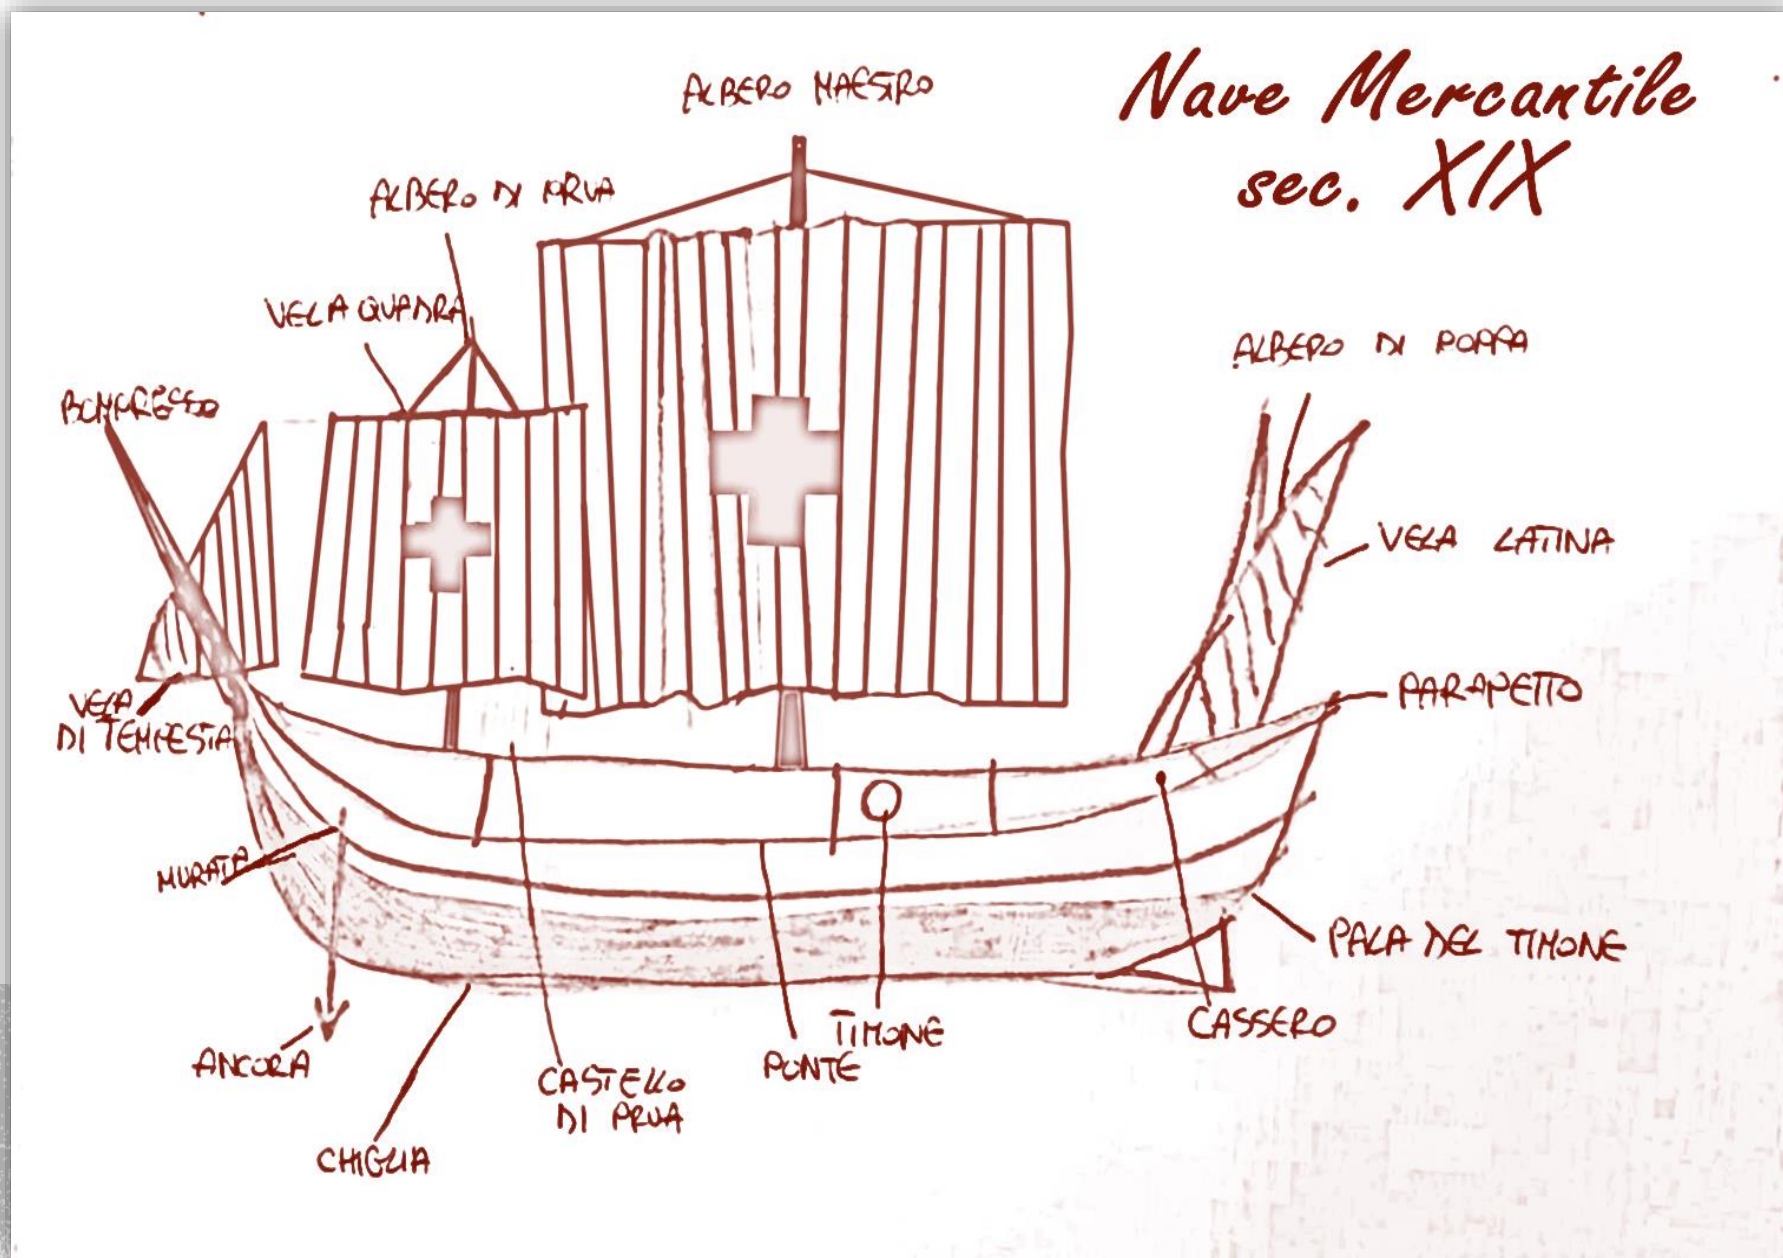 Nave Mercantile
sec. XIX
ALBERO MAESTRO
ALBERO DI PRUA
VELA QUADRA
BOMPRESSO
ALBERO DI POPPA
VELA LATINA
PARAPETTO
VELA
DI TEMPESTA
MURATA
PALA DEL TIMONE
CASSERO
TIMONE
PONTE
ANCORA
CASTELLO
DI PRUA
CHIGLIA